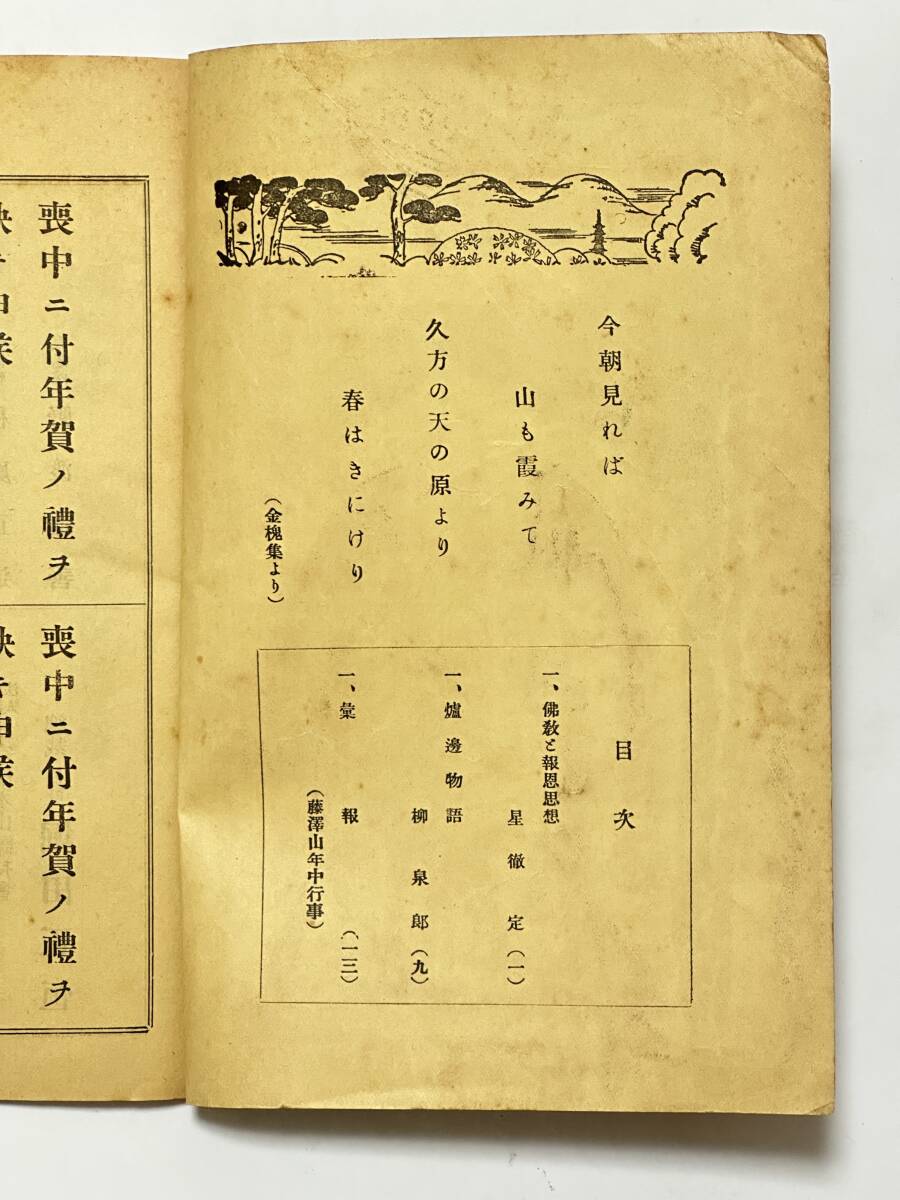 今朝見れば
山も霞みて
久方の天の原より
春はきにけり
(金槐集より)
目次
一、佛教と報恩思想
星徹定(一)
一、爐邊物語
柳泉郎(九)
一、彙報(一三)
(藤澤山年中行事)
喪中ニ付年賀ノ禮ヲ
喪中ニ付年賀ノ禮ヲ